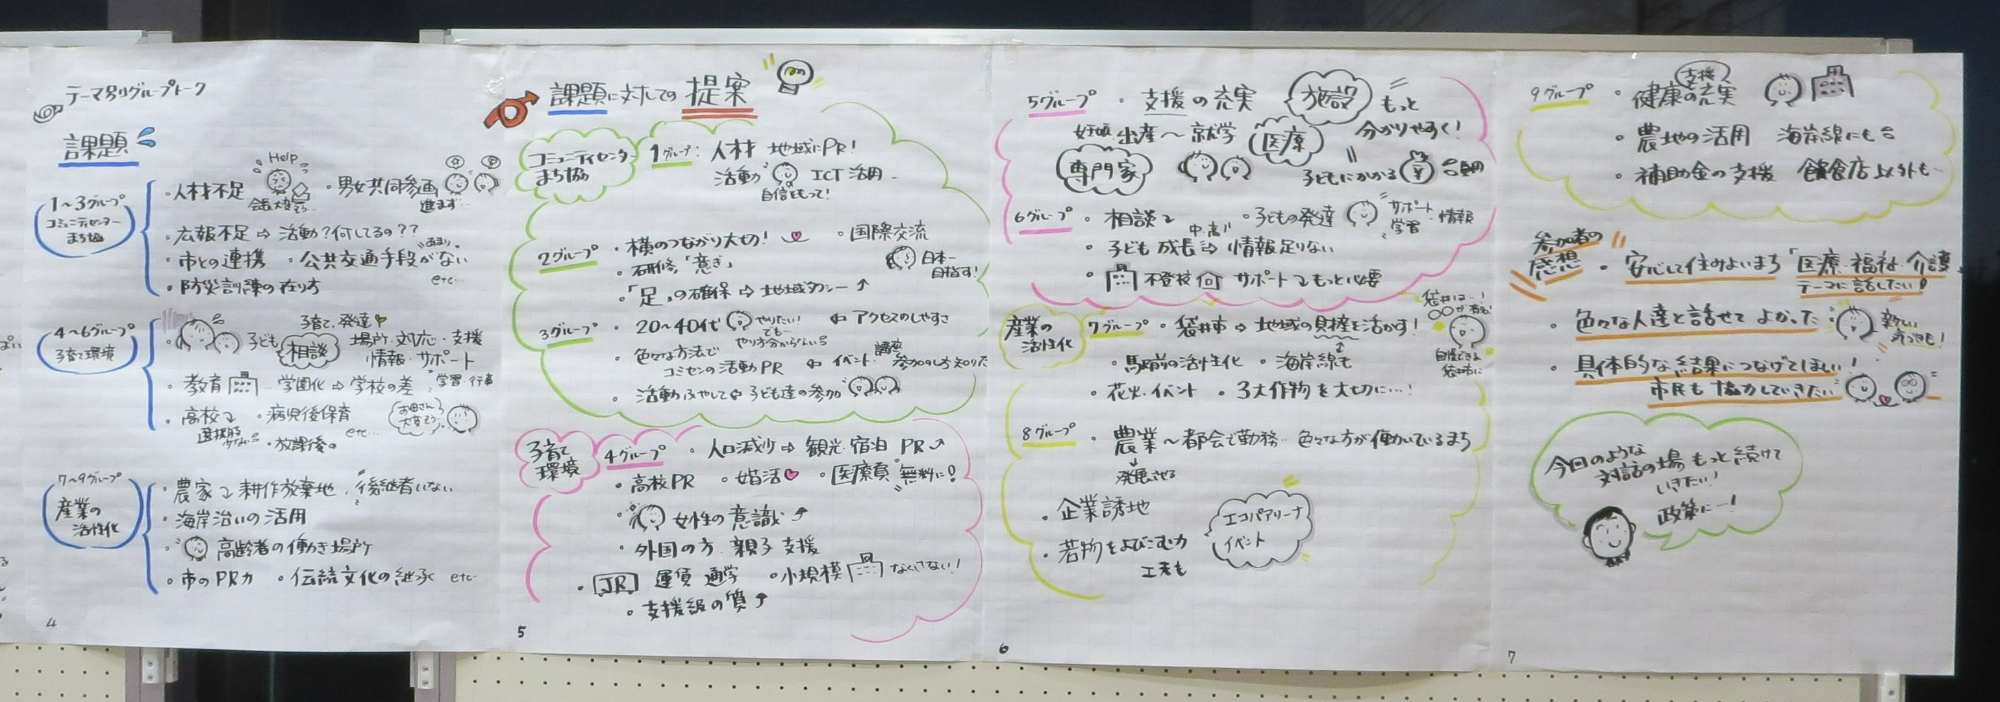 テーマ別グループトーク
課題
1~3グループ
コミュニティセンター
まち協
・人材不足
Help
・男女共同参画
進まず…
・広報不足⇨活動?何してるの??
・市との連携 ・公共交通手段がない
あまり
・防災訓練の在り方
etc…
4~6グループ
子育て環境
子育て、発達
・子ども 相談 場所・対応・支援
情報・サポート
・教育 学園化⇨学校の差
学習・行事
・高校 ・病児後保育
お母さん
大変そう
・放課後
etc…
7~9グループ
産業の
活性化
・農家 耕作放棄地 後継者いない
・海岸沿いの活用
・高齢者の働き場所
・市のPR力 ・伝統文化の継承 etc…
4
課題に対しての提案
コミュニティセンター
まち協
1グループ: 人材 地域にPR!
活動 ICT活用
自信もって!
2グループ ・横のつながり大切! ・国際交流
・研修「意き」
日本一
目指す!
・「足」の確保⇨地域タクシー↑
3グループ ・20~40代 やりたい!
でも…
やり方分からない
⇦アクセスのしやすさ
・色々な方法で
コミセンの活動PR ⇦イベント
・活動ふやして⇦子ども達の参加
子育て
環境
4グループ ・人口減少⇨観光・宿泊 PR
・高校PR ・婚活 ・医療費 無料に!
・女性の意識↑
・外国の方 親子 支援
・JR 運賃 通学 ・小規模 なくさない!
・支援級の質↑
5
5グループ ・支援の充実 施設 もっと
分かりやすく!
妊娠 出産~就学 医療
専門家 子どもにかかる
6グループ ・相談 ・子どもの発達 サポート 情報
学習
中高
・子ども成長⇨情報足りない
・不登校 サポート もっと必要
産業の
活性化
7グループ ・袋井市⇨地域の良さを活かす!
・駅前の活性化 ・海岸線も
・花火・イベント ・3大作物を大切に…!
8グループ ・農業~都会で勤務 色々な方が働いているまち
発展させる
・企業誘地
エコパアリーナ
イベント
・若物をよびこむ力
工夫も
6
9グループ ・健康の充実
支援
・農地の活用 海岸線にも
・補助金の支援 飲食店以外も…
参加者の
感想
・安心して住みよいまち「医療・福祉・介護」
テーマに話したい!
・色々な人達と話せてよかった
・具体的な結果につなげてほしい!
市民も協力していきたい
今回のような
対話の場 もっと続けて
いきたい!
政策に―!
7